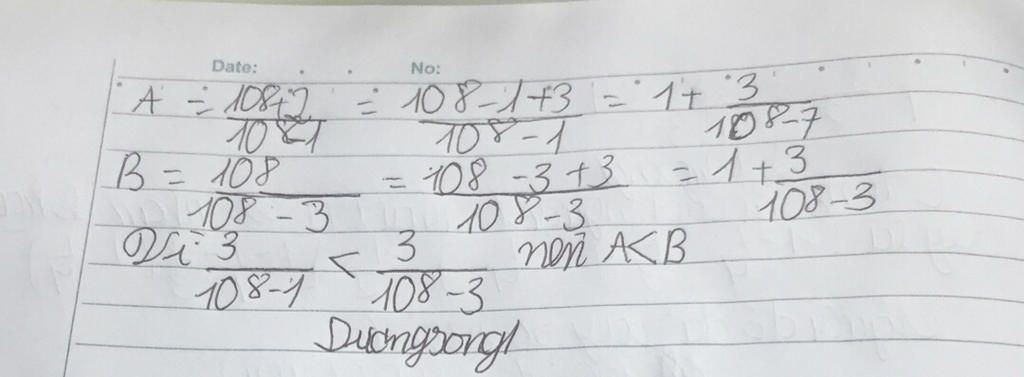 Date: No:
A = 108+2/108-1 = 108-1+3/108-1 = 1+ 3/108-7
B = 108/108-3 = 108-3+3/108-3 = 1+ 3/108-3
3/108-1 < 3/108-3 nên A<B
Duongsong1